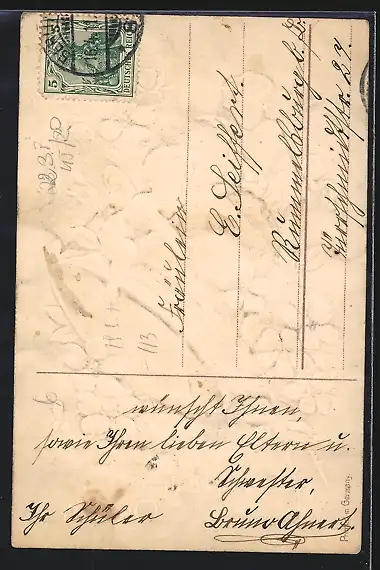 5
DEUTSCHES REICH
BERLIN
Fräulein
E. Seiffert.
Rummelsburg b. B.
27
113
wünscht Ihnen,
sowie Ihren lieben Eltern u.
Schwester,
Ihr Schüler
Bruno Ahnert.
Printed in Germany